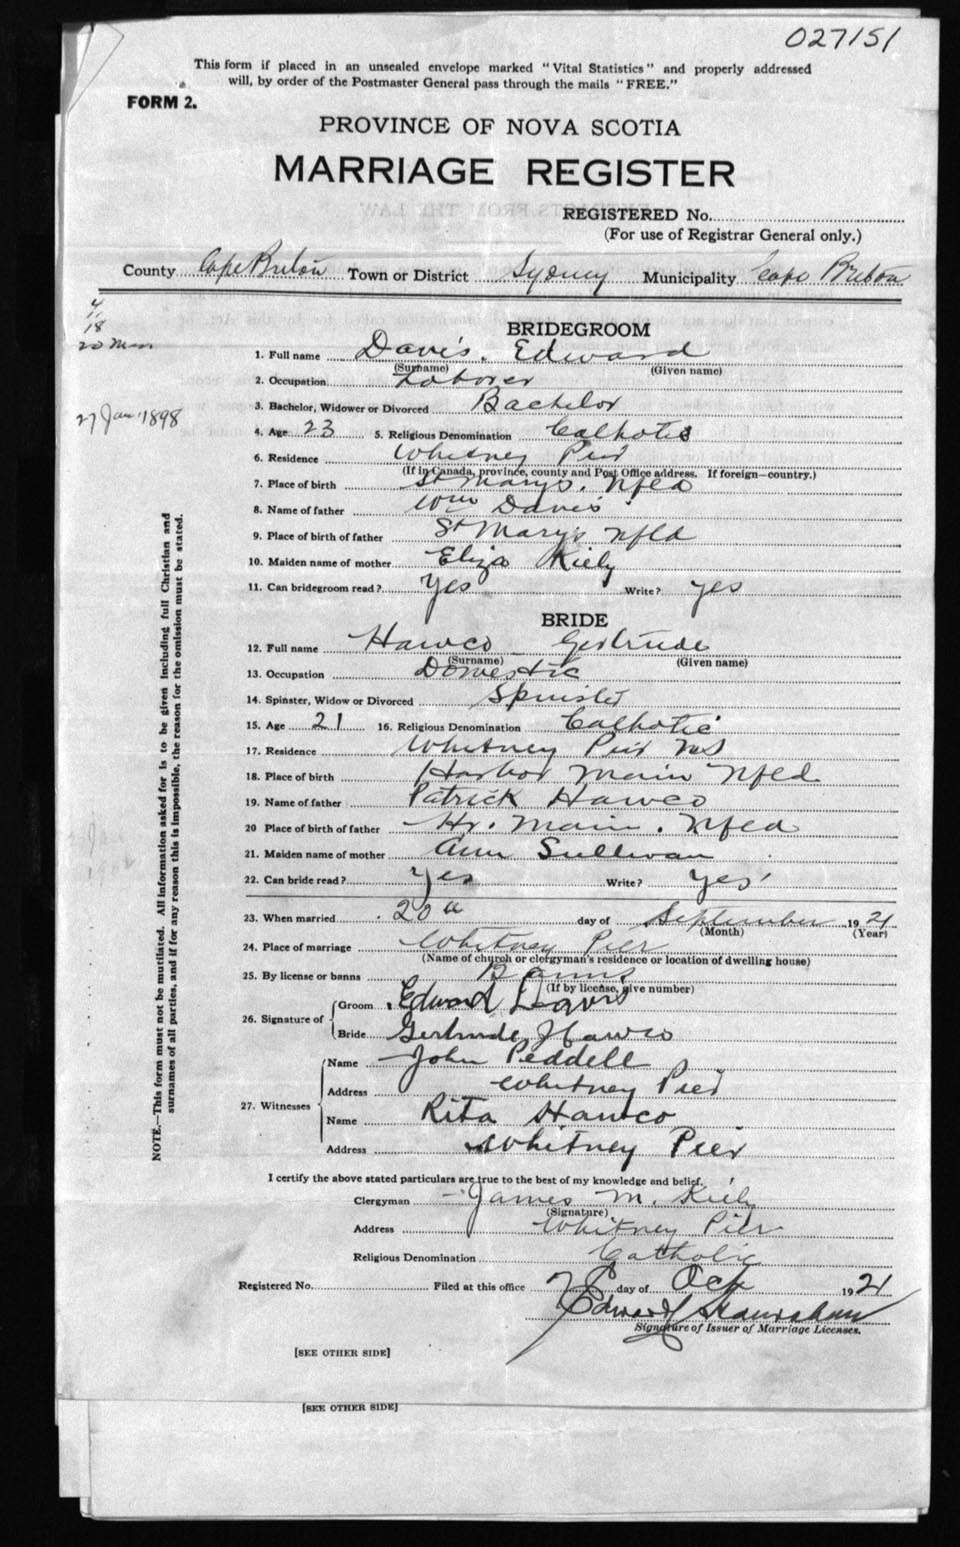 027151
This form if placed in an unsealed envelope marked "Vital Statistics" and properly addressed
will, by order of the Postmaster General pass through the mails "FREE."
FORM 2.
PROVINCE OF NOVA SCOTIA
MARRIAGE REGISTER
REGISTERED No.
(For use of Registrar General only.)
County Cape Breton Town or District Sydney Municipality Cape Breton
4/18
27 Jan 1898
BRIDEGROOM
1. Full name Davis. Edward
(Surname) (Given name)
2. Occupation Laborer
3. Bachelor, Widower or Divorced Bachelor
4. Age 23 5. Religious Denomination Catholic
6. Residence Whitney Pier
(If in Canada, province, county and Post Office address. If foreign—country.)
7. Place of birth St Marys. Nfld
8. Name of father Wm Davis
9. Place of birth of father St Mary's Nfld
10. Maiden name of mother Eliza Kiely
11. Can bridegroom read? Yes Write? yes
BRIDE
12. Full name Hawco Gertrude
(Surname) (Given name)
13. Occupation Domestic
14. Spinster, Widow or Divorced Spinster
15. Age 21 16. Religious Denomination Catholic
17. Residence Whitney Pier NS
18. Place of birth Harbor Main Nfld
19. Name of father Patrick Hawco
20 Place of birth of father Hr. Main. Nfld
21. Maiden name of mother Ann Sullivan
22. Can bride read? Yes Write? yes
23. When married 20th day of September 1921
(Month) (Year)
24. Place of marriage Whitney Pier
(Name of church or clergyman's residence or location of dwelling house)
25. By license or banns Banns
(If by license, give number)
26. Signature of Groom Edward Davis
Bride Gertrude Hawco
27. Witnesses Name John Peddell
Address Whitney Pier
Name Rita Hawco
Address Whitney Pier
I certify the above stated particulars are true to the best of my knowledge and belief.
Clergyman James M. Kiely
(Signature)
Address Whitney Pier
Religious Denomination Catholic
Registered No. Filed at this office day of Oct 1921
Edward
Signature of Issuer of Marriage Licenses.
[SEE OTHER SIDE]
[SEE OTHER SIDE]
NOTE.—This form must not be mutilated. All information asked for is to be given including full Christian and
surnames of all parties, and if for any reason this is impossible, the reason for the omission must be stated.